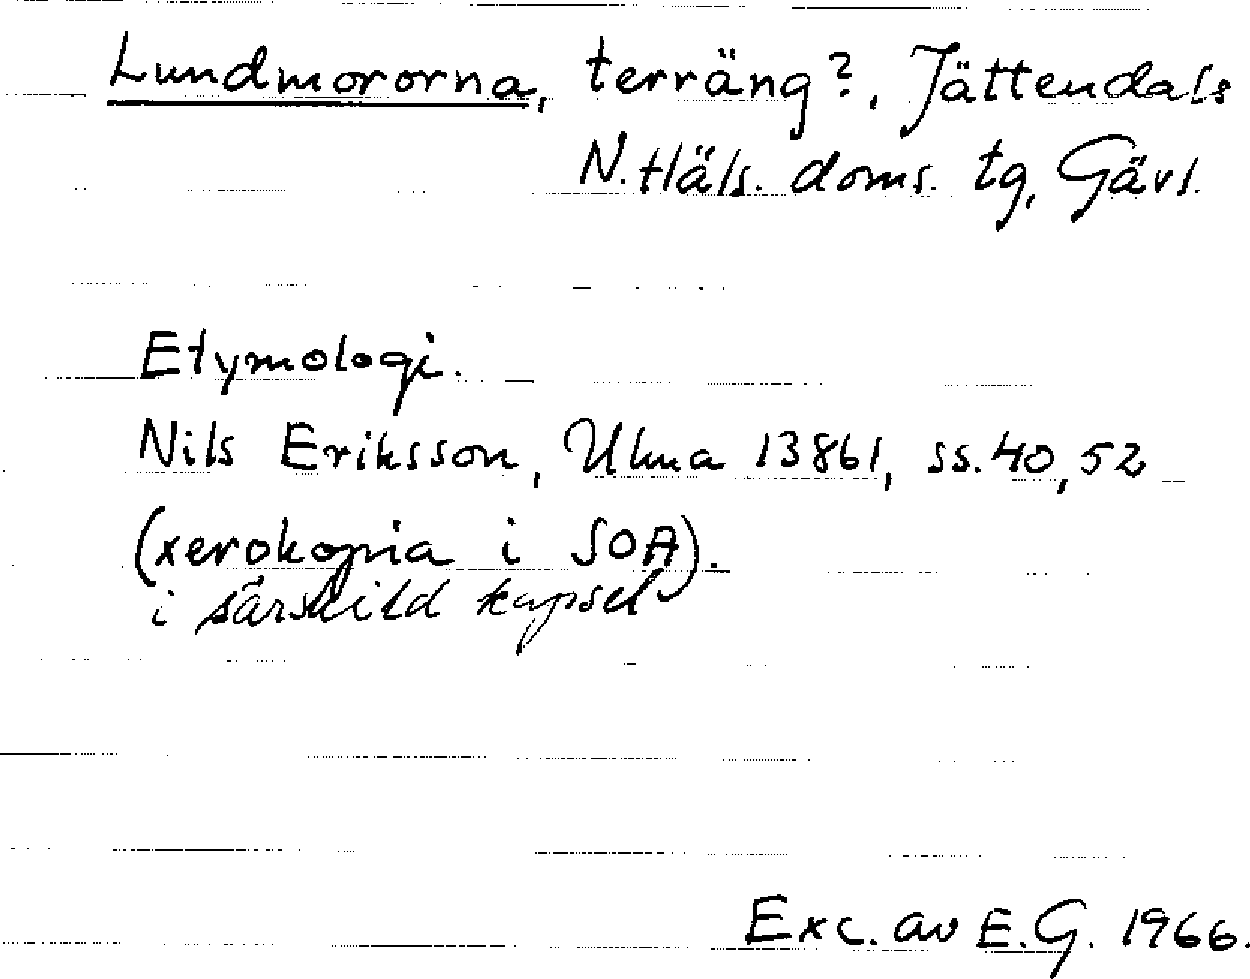 Lundmororna, terräng?, Jättendals
N. Häls. doms. tg, Gävl.
Etymologi.
Nils Eriksson, Ulma 13861, ss. 40, 52
(xerokopia i SOA).
i särskild kapsel
Exc. av E.G. 1966.